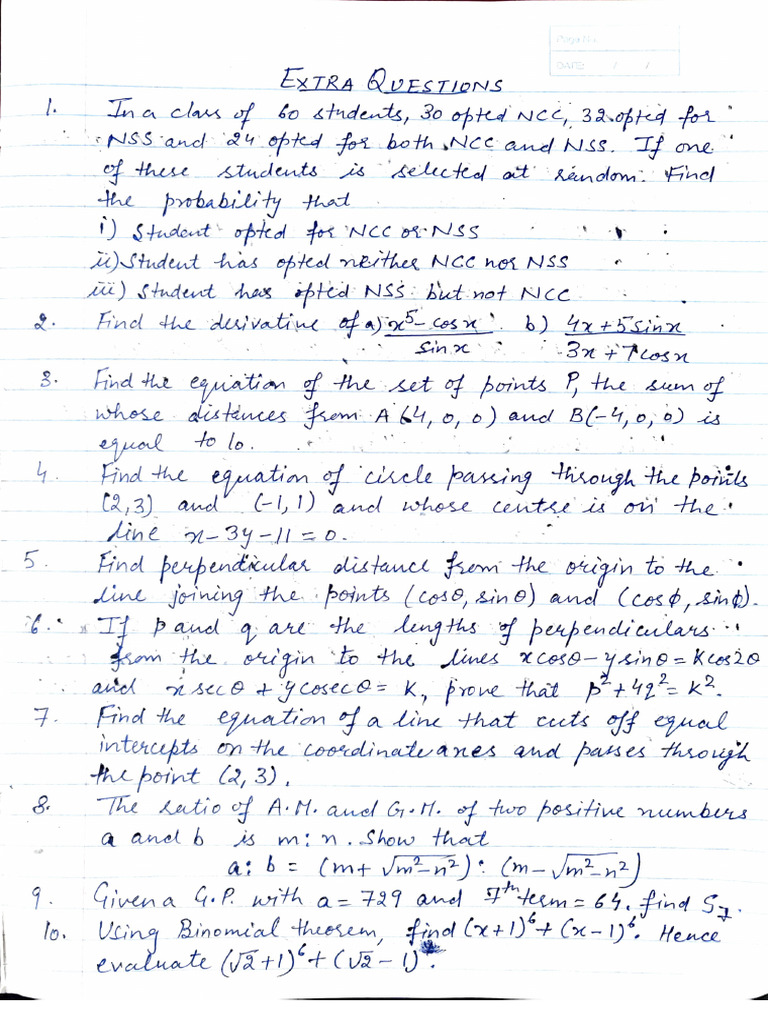 Page No.
DATE: / /
EXTRA QUESTIONS
1. In a class of 60 students, 30 opted NCC, 32 opted for
NSS and 24 opted for both NCC and NSS. If one
of these students is selected at random. Find
the probability that
i) Student opted for NCC or NSS
ii) Student has opted neither NCC nor NSS
iii) Student has opted NSS but not NCC
2. Find the derivative of a) x⁵ - cosx / sinx b) 4x + 5sinx / 3x + 7cosx
3. Find the equation of the set of points P, the sum of
whose distances from A (4, 0, 0) and B(-4, 0, 0) is
equal to 10.
4. Find the equation of circle passing through the points
(2,3) and (-1,1) and whose centre is on the
line x - 3y - 11 = 0.
5. Find perpendicular distance from the origin to the
line joining the points (cosθ, sinθ) and (cosϕ, sinϕ).
6. If p and q are the lengths of perpendiculars
from the origin to the lines xcosθ - ysinθ = Kcos2θ
and xsecθ + ycosecθ = K, prove that p² + 4q² = K².
7. Find the equation of a line that cuts off equal
intercepts on the coordinate axes and passes through
the point (2, 3).
8. The ratio of A.M. and G.M. of two positive numbers
a and b is m:n. Show that
a: b = (m + √m²-n²) : (m - √m²-n²)
9. Given a G.P. with a = 729 and 7th term = 64. find S₇.
10. Using Binomial theorem, find (x+1)⁶ + (x-1)⁶. Hence
evaluate (√2 + 1)⁶ + (√2 - 1)